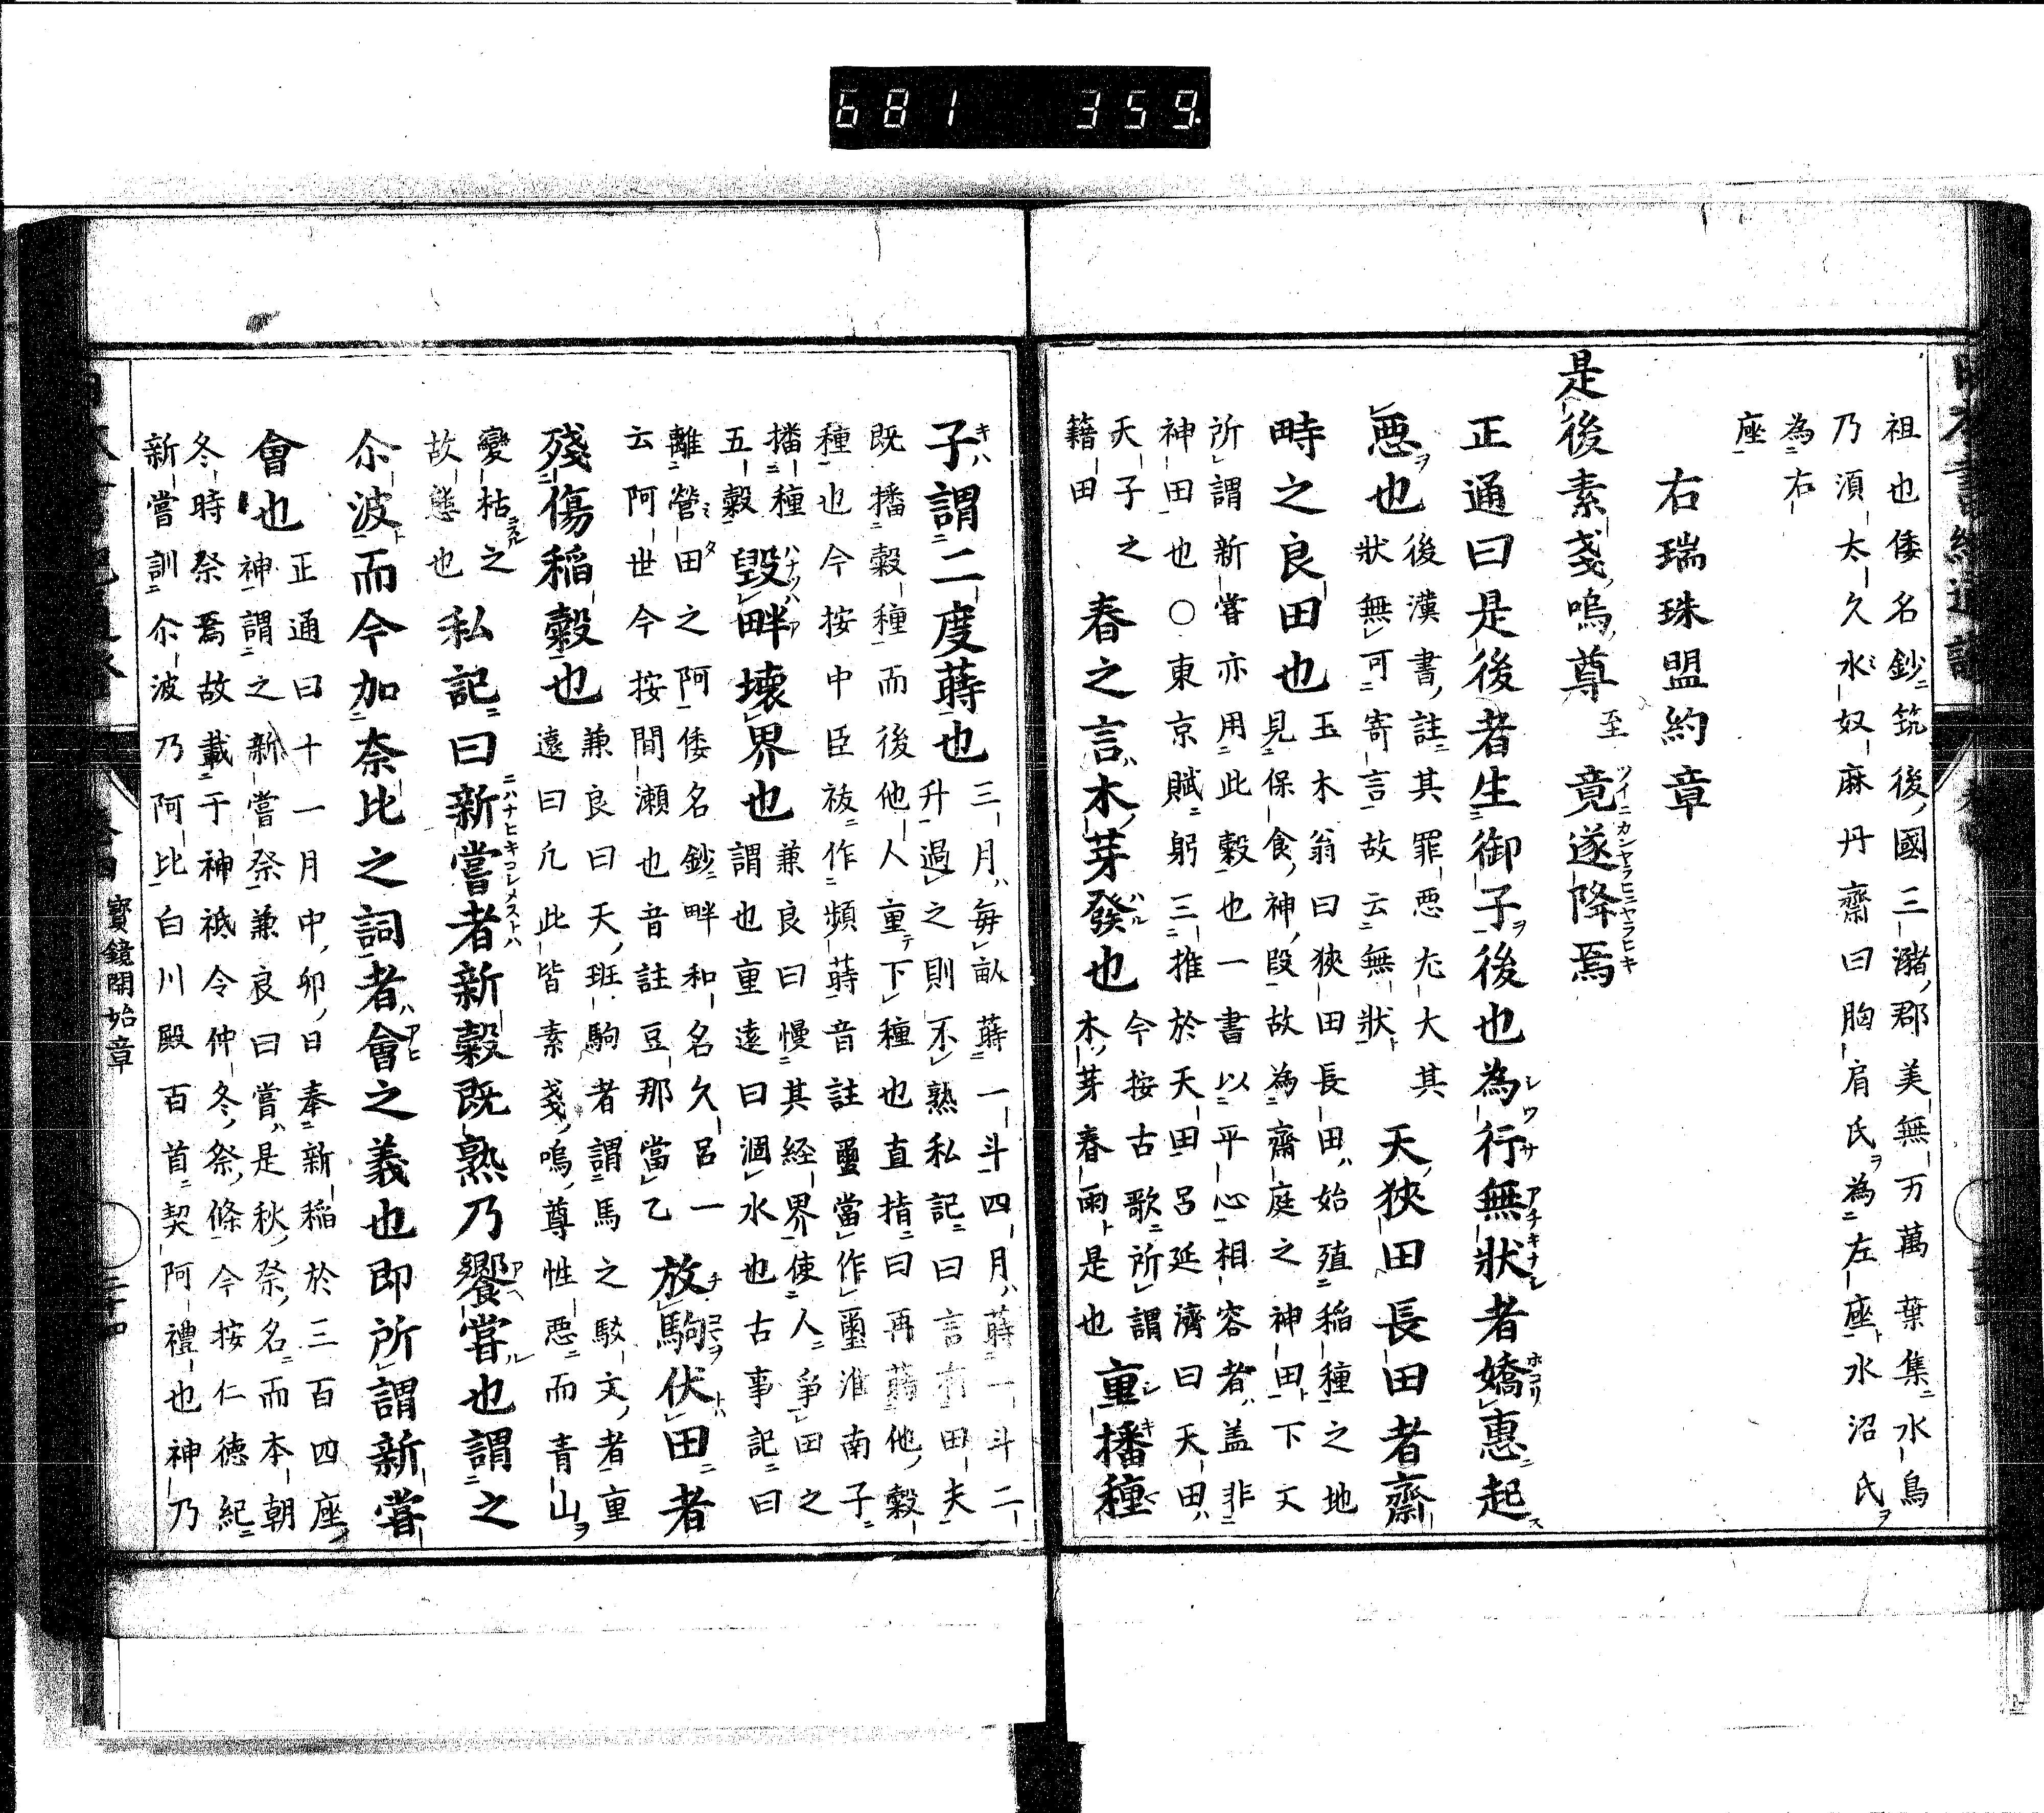 681 359
祖也倭名鈔筑後國三瀦郡美無万萬葉集水鳥
乃湏太久水奴麻丹齋曰胸肩氏為左座水沼氏
為右
座
右瑞珠盟約章
是後素戔嗚尊至竟遂降焉
正通曰是後者生御子後也為行無狀者嬌惠起
悪也
後漢書註其罪悪尤大其
狀無可寄言故云無狀
天狹田長田者齋
畤之良田也
玉木翁曰狹田長田始殖稲種之地
見保食神段故為齋庭之神田下文
所謂新嘗亦用此穀也一書以平心相容者盖非
神田也○東京賦躬三推於天田呂延濟曰天田
天子之
籍田
春之言木芽發也
今按古歌所謂
木芽春雨是也
重播種
子謂二度蒔也
三月每畝蒔一斗四月蒔一斗二
升過之則不熟私記曰言有田夫
既播穀種而後他人重下種也直指曰再蒔他穀
種也今按中臣祓作頻蒔音註璽當作壐淮南子
播種
五穀
毀畔壊界也
兼良曰慢其経界使人爭田之
謂也重遠曰涸水也古事記曰
離營田之阿倭名鈔畔和名久呂一
云阿世今按間瀬也音註豆那當乙
放駒伏田者
殘傷稲穀也
兼良曰天班駒者謂馬之駁文者重
遠曰凢此皆素戔嗚尊性悪而青山
變枯之
故態也
私記曰新嘗者新穀既熟乃饗嘗也謂之
尒波而今加奈比之詞者會之義也即所謂新嘗
會也
正通曰十一月中卯日奉新稲於三百四座
神謂之新嘗祭兼良曰嘗是秋祭名而本朝
冬時祭焉故載于神祇令仲冬祭條今按仁徳紀
新嘗訓尒波乃阿比白川殿百首契阿禮也神乃
寳鏡開始章